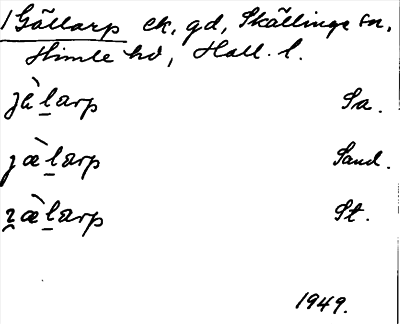 1 Gällarp ek, gd, Skällinge sn,
Himle hd, Hall. l.
jä̀l̲arp Sa.
jæ̀l̲arp Sand.
ʓæ̀l̲arp St.
1949.